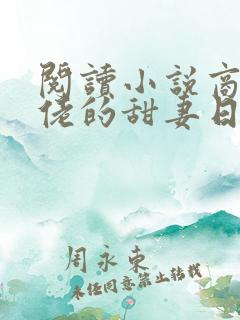 閱讀小說商
佬的甜妻日
周永東
未经同意禁止转载